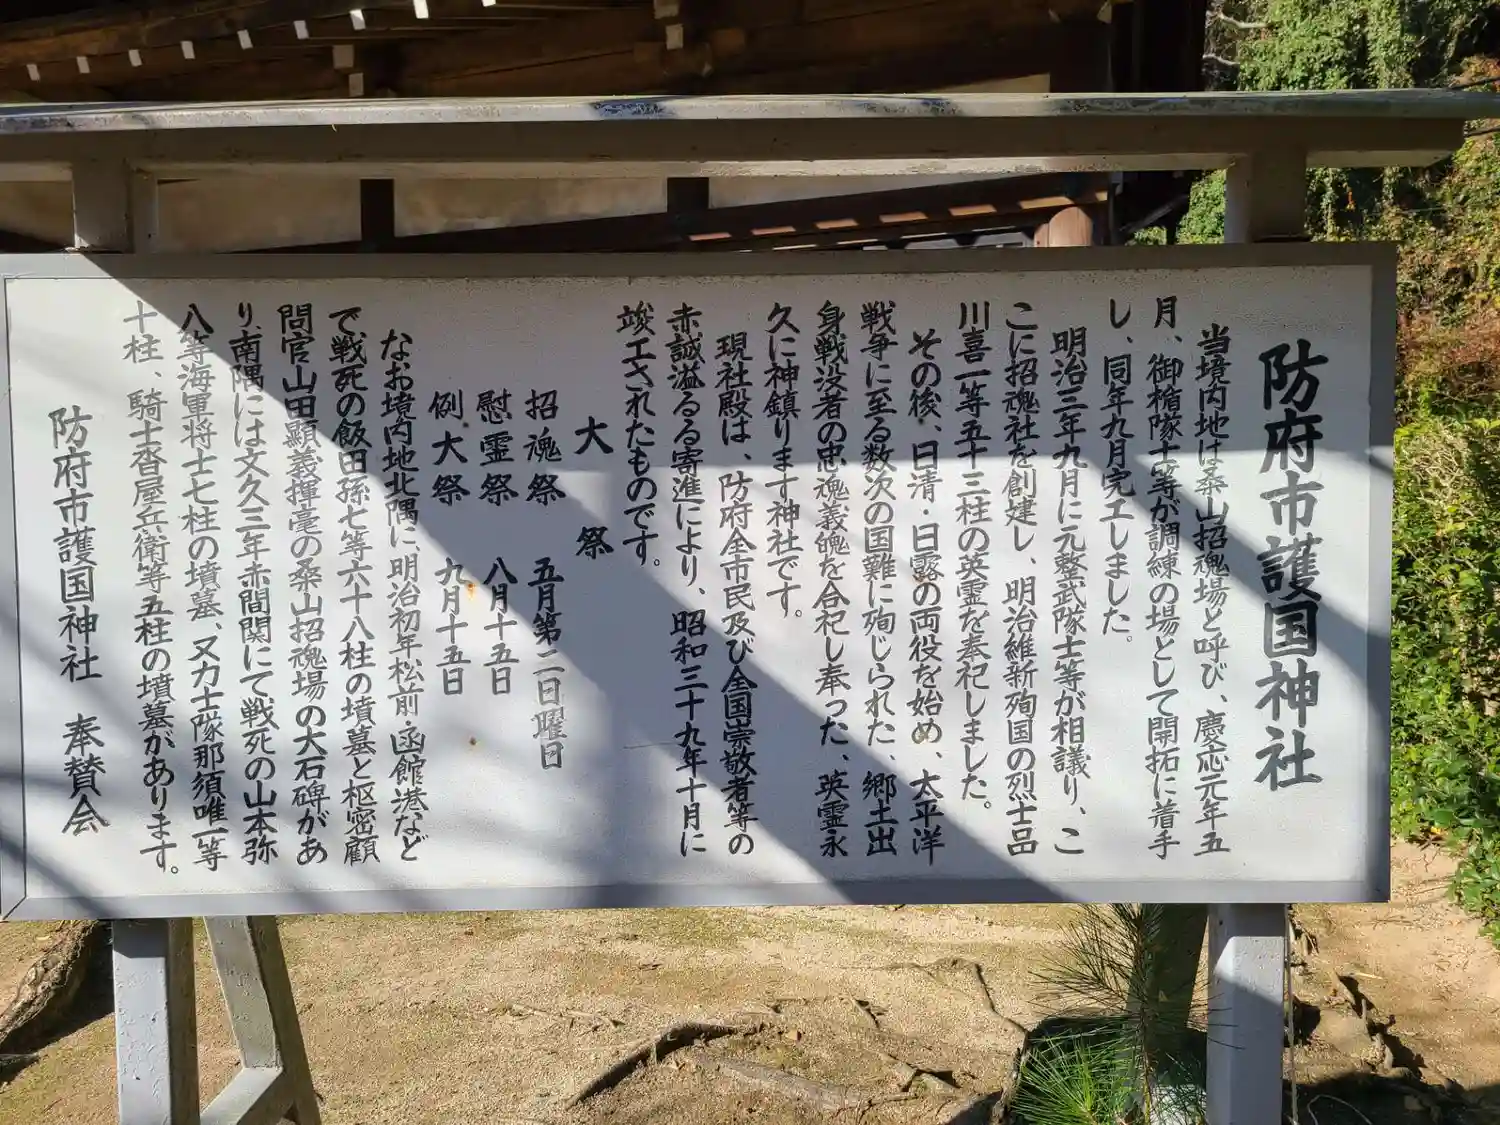 防府市護国神社
当境内地は桑山招魂場と呼び、慶応元年五
月、御楯隊士等が調練の場として開拓に着手
し、同年九月完工しました。
明治三年九月に元整武隊士等が相議り、こ
こに招魂社を創建し、明治維新殉国の烈士品
川喜一等五十三柱の英霊を奉祀しました。
その後、日清・日露の両役を始め、太平洋
戦争に至る数次の国難に殉じられた、郷土出
身戦没者の忠魂義魄を合祀し奉った、英霊永
久に神鎮ります神社です。
現社殿は、防府全市民及び全国崇敬者等の
赤誠溢るる寄進により、昭和三十九年十月に
竣工されたものです。
大祭
招魂祭 五月第二日曜日
慰霊祭 八月十五日
例大祭 九月十五日
なお境内地北隅に、明治初年松前・函館港など
で戦死の飯田孫七等六十八柱の墳墓と枢密顧
問官山田顕義揮毫の桑山招魂場の大石碑があ
り、南隅には文久三年赤間関にて戦死の山本弥
八等海軍将士七柱の墳墓、又力士隊那須唯一等
十柱、騎士沓屋兵衛等五柱の墳墓があります。
防府市護国神社 奉賛会